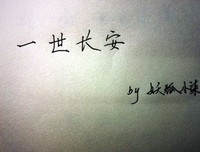 一世长安
by 妖狐小